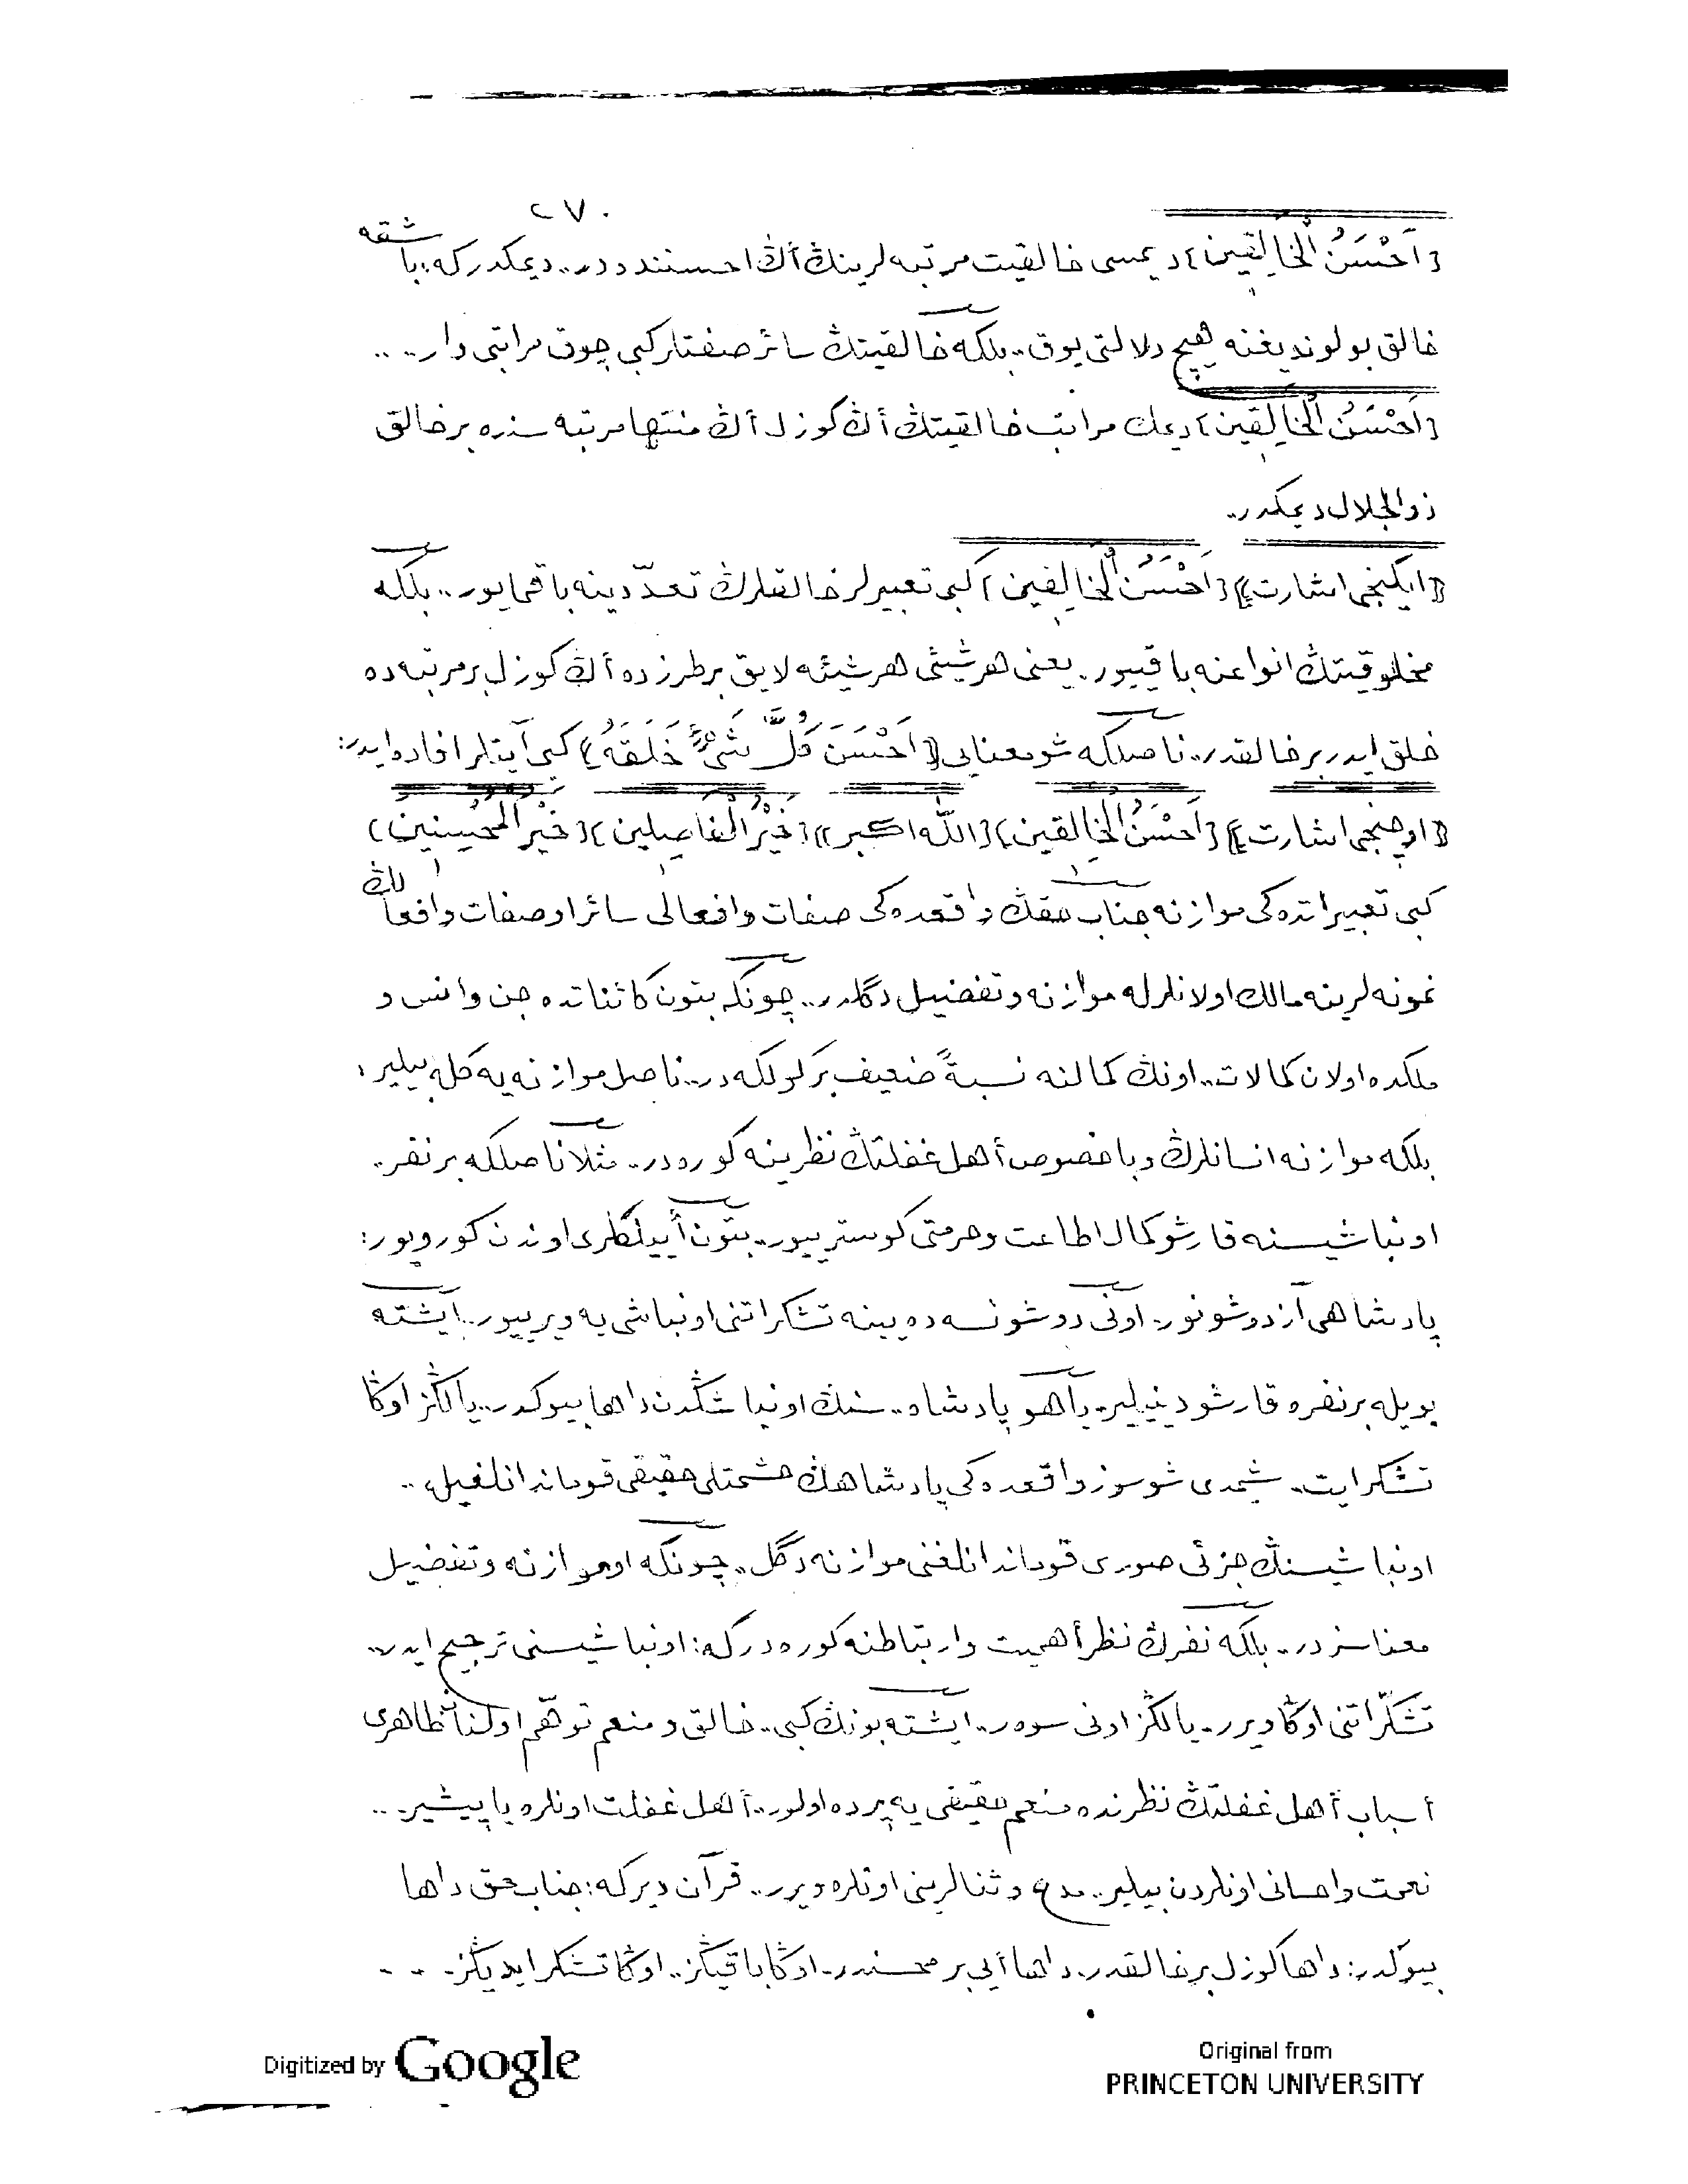 ٢٧٠
﴿اَحْسَنُ الْخَالِقِينَ﴾ ديمسى خالقيت مرتبه لرينڭ أڭ احسننده در.. ديمكدر كه: باشقه
خالق بولونديغنه هيچ دلالتى يوق.. بلكه خالقيتڭ سائر صفتلر كبى چوق مراتبى وار...
﴿اَحْسَنُ الْخَالِقِينَ﴾ ديمك مراتب خالقيتڭ أڭ كوزل أڭ منتها مرتبه سنده بر خالق
ذو الجلال ديمكدر..
﴿ايكنجى اشارت﴾ ﴿اَحْسَنُ الْخَالِقِين﴾ كبى تعبيرلر خالقلرڭ تعدّدينه باقمايور.. بلكه
مخلوقيتڭ انواعنه باقييور. يعنى هر شيئى هر شيئه لايق بر طرزده أڭ كوزل بر مرتبه ده
خلق ايدر بر خالقدر.. ناصلكه شو معنايى ﴿اَحْسَنَ كُلَّ شَىْءٍ خَلَقَهُ﴾ كبى آيتلر افاده ايدر:
﴿اوچنجى اشارت﴾ ﴿اَحْسَنُ الْخَالِقين﴾ ﴿اللّٰه اكبر﴾ ﴿خَيْرُ الْفَاصِلين﴾ ﴿خَيْرُ الْمُحْسِنِين﴾
كبى تعبيراتده كى موازنه جناب حقڭ واقعده كى صفات و افعالى سائر او صفات و افعالڭ
نمونه لرينه مالك اولانلرله موازنه و تفضيل دگلدر.. چونكه بتون كائناتده جن و انس و
ملكده اولان كمالات.. اونڭ كمالنه نسبةً ضعيف بر كولگه در.. ناصل موازنه يه كله بيلير؛
بلكه موازنه انسانلرڭ و باخصوص أهل غفلتڭ نظرينه كوره در.. مثلا ناصلكه بر نفر..
اونباشيسنه قارشو كمال اطاعت و حرمتى كوستريیور.. بتون أييلكلرى اوندن كورويور:
پادشاهى آز دوشونور. اونى دوشونسه ده يينه تشكراتنى اونباشى يه ويرييور.. ايشته
بويله بر نفره قارشو دينيلير. ياهو پادشاه.. سنڭ اونباشڭدن داها بيوكدر.. يالڭز اوڭا
تشكر ايت.. شيمدى شو سوز واقعده كى پادشاهڭ حشمتلى حقيقى قوماندانلغيله..
اونباشيسنڭ جزئى صورى قوماندانلغنى موازنه دگل.. چونكه او موازنه و تفضيل
معناسزدر.. بلكه نفرڭ نظر أهميت و ارتباطنه كوره در كه: اونباشيسنى ترجيح ايدر..
تشكّراتنى اوڭا ويرر.. يالڭز اونى سوه ر.. ايشته بونڭ كبى.. خالق و منعم توهّم اولنان ظاهرى
أسباب أهل غفلتڭ نظرنده منعم حقيقى يه پرده اولور.. أهل غفلت اونلره ياپيشير...
نعمت و احسانى اونلردن بيلير.. مدح و ثنالرينى اونلره ويرر.. قرآن دير كه: جناب حق داها
بيوكدر: داها كوزل بر خالقدر. داها أيى بر محسندر.. اوڭا باقيڭز.. اوڭا تشكر ايديڭز...
Digitized by Google
Original from
PRINCETON UNIVERSITY